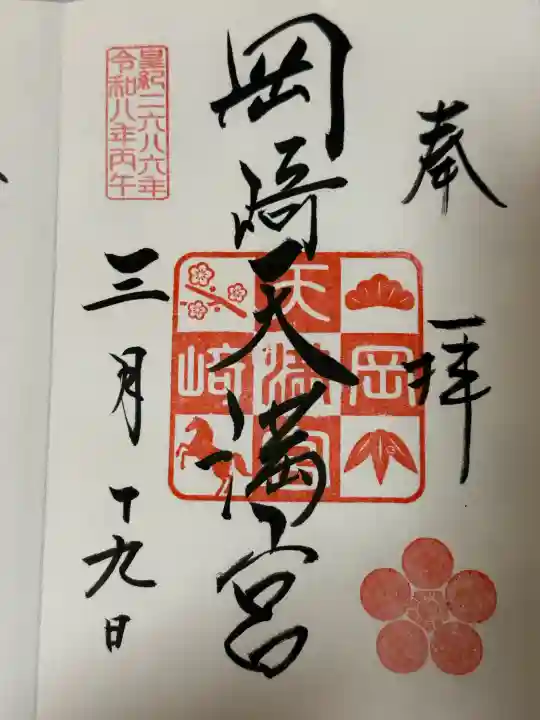 奉拝
岡﨑天満宮
岡
天満宮
﨑
皇紀二六八六年
令和八年丙午
三月十九日